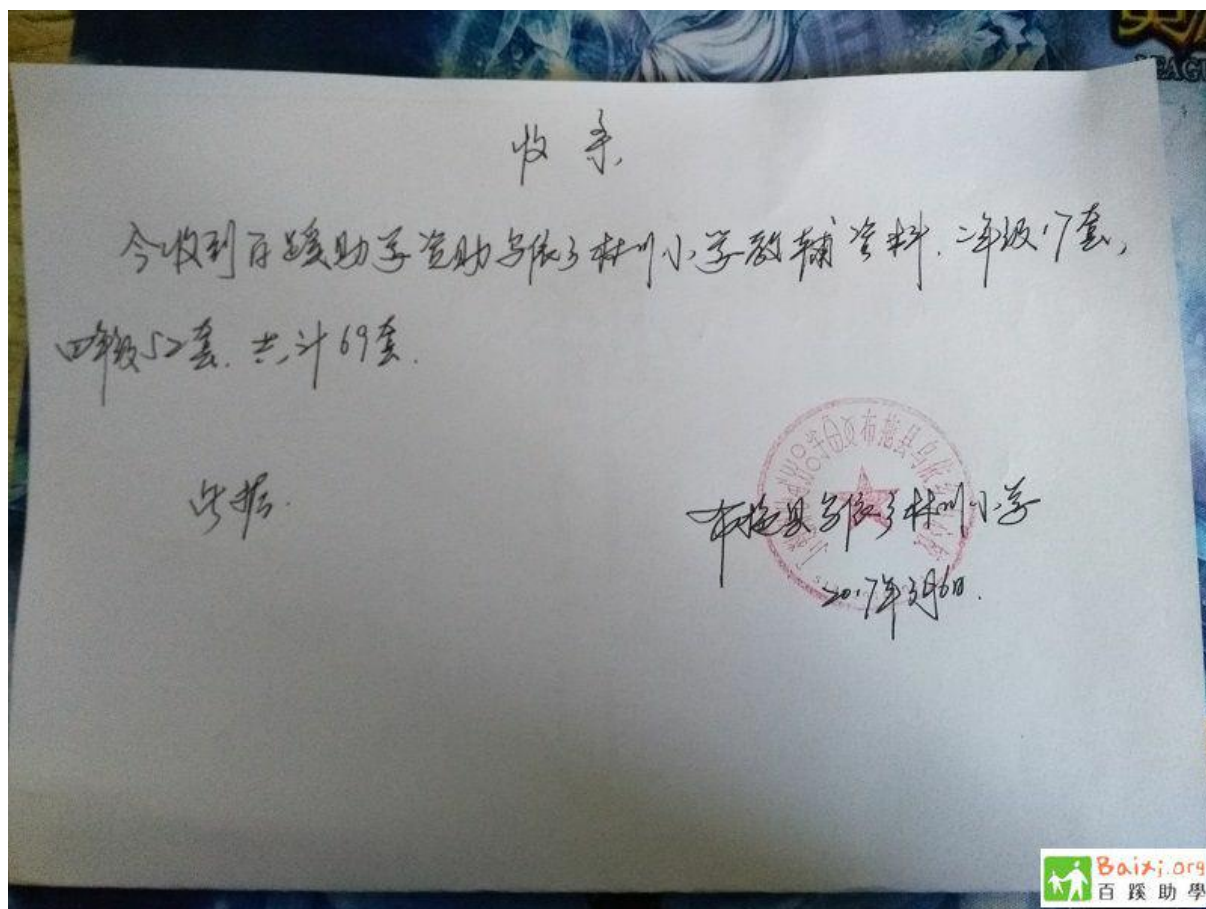 收条
今收到百蹊助学资助乌依乡林川小学教辅资料.二年级17套,
四年级52套.共计69套.
此据.
布拖县乌依乡林川小学
2017年3月6日.
布拖县乌依乡
LEAGU
Baixi.org
百蹊助學